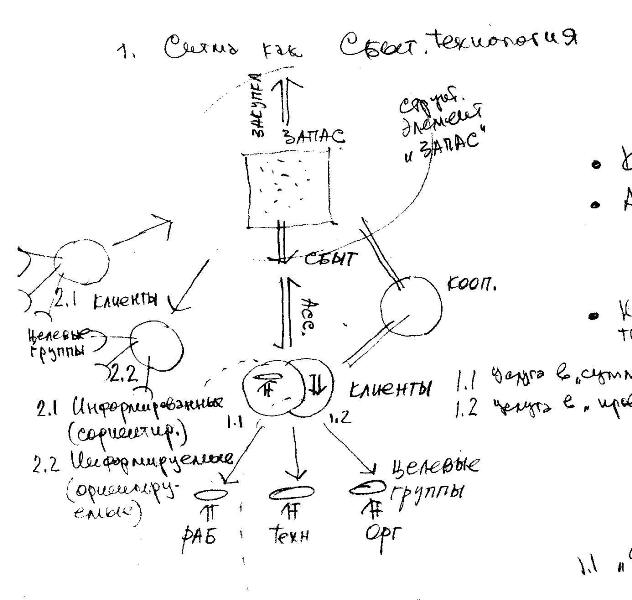 1. Сигма как Сбыт. технология
ЗАКУПКА
ЗАПАС
структ.
элемент
„ЗАПАС"
СБЫТ
АСС.
КООП.
2.1 КЛИЕНТЫ
Целевые
группы
2.2
КЛИЕНТЫ
1.1
1.2
1.1 услуга в
1.2 услуга в
2.1 Информированные
(сориентир.)
2.2 Информируемые
(ориентируемые)
ЦЕЛЕВЫЕ
ГРУППЫ
РАБ
ТЕХН
ОРГ
1.1